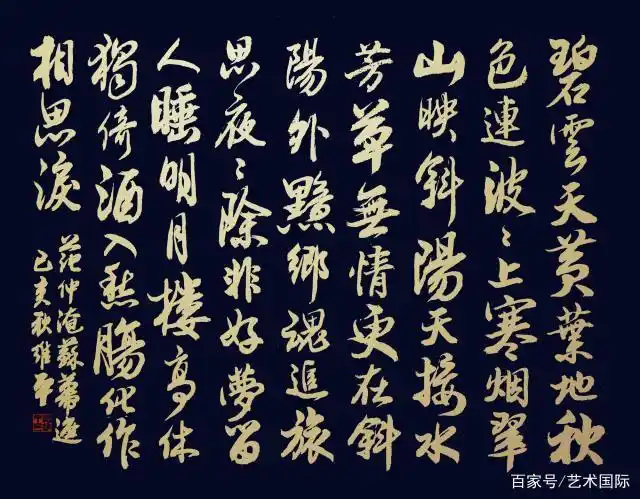 碧雲天黄葉地秋
色連波〻上寒烟翠
山映斜陽天接水
芳草無情更在斜
陽外黯鄉魂追旅
思夜〻除非好夢留
人睡明月樓高休
獨倚酒入愁腸化作
相思淚
范仲淹蘇幕遮
己亥秋維平
百家号/艺术国际